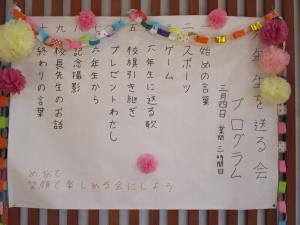 六年生を送る会
プログラム
三月四日 業間・三時間目
一 始めの言葉
二 スポーツ
三 ゲーム
四 六年生に送る歌
五 校旗引き継ぎ
六 プレゼントわたし
七 六年生から
八 記念撮影
九 校長先生のお話
十 終わりの言葉
めあて
笑顔で楽しめる会にしよう